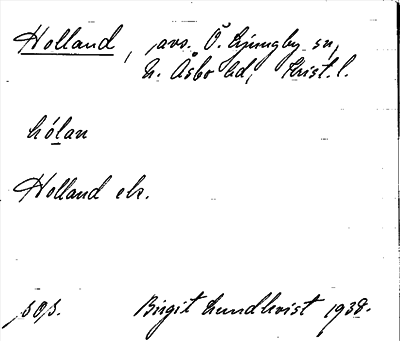 Holland, avs. Ö. Ljungby sn,
N. Åsbo hd, Krist. l.
hólan
Holland ek.
Birgit Lundkvist 1938.